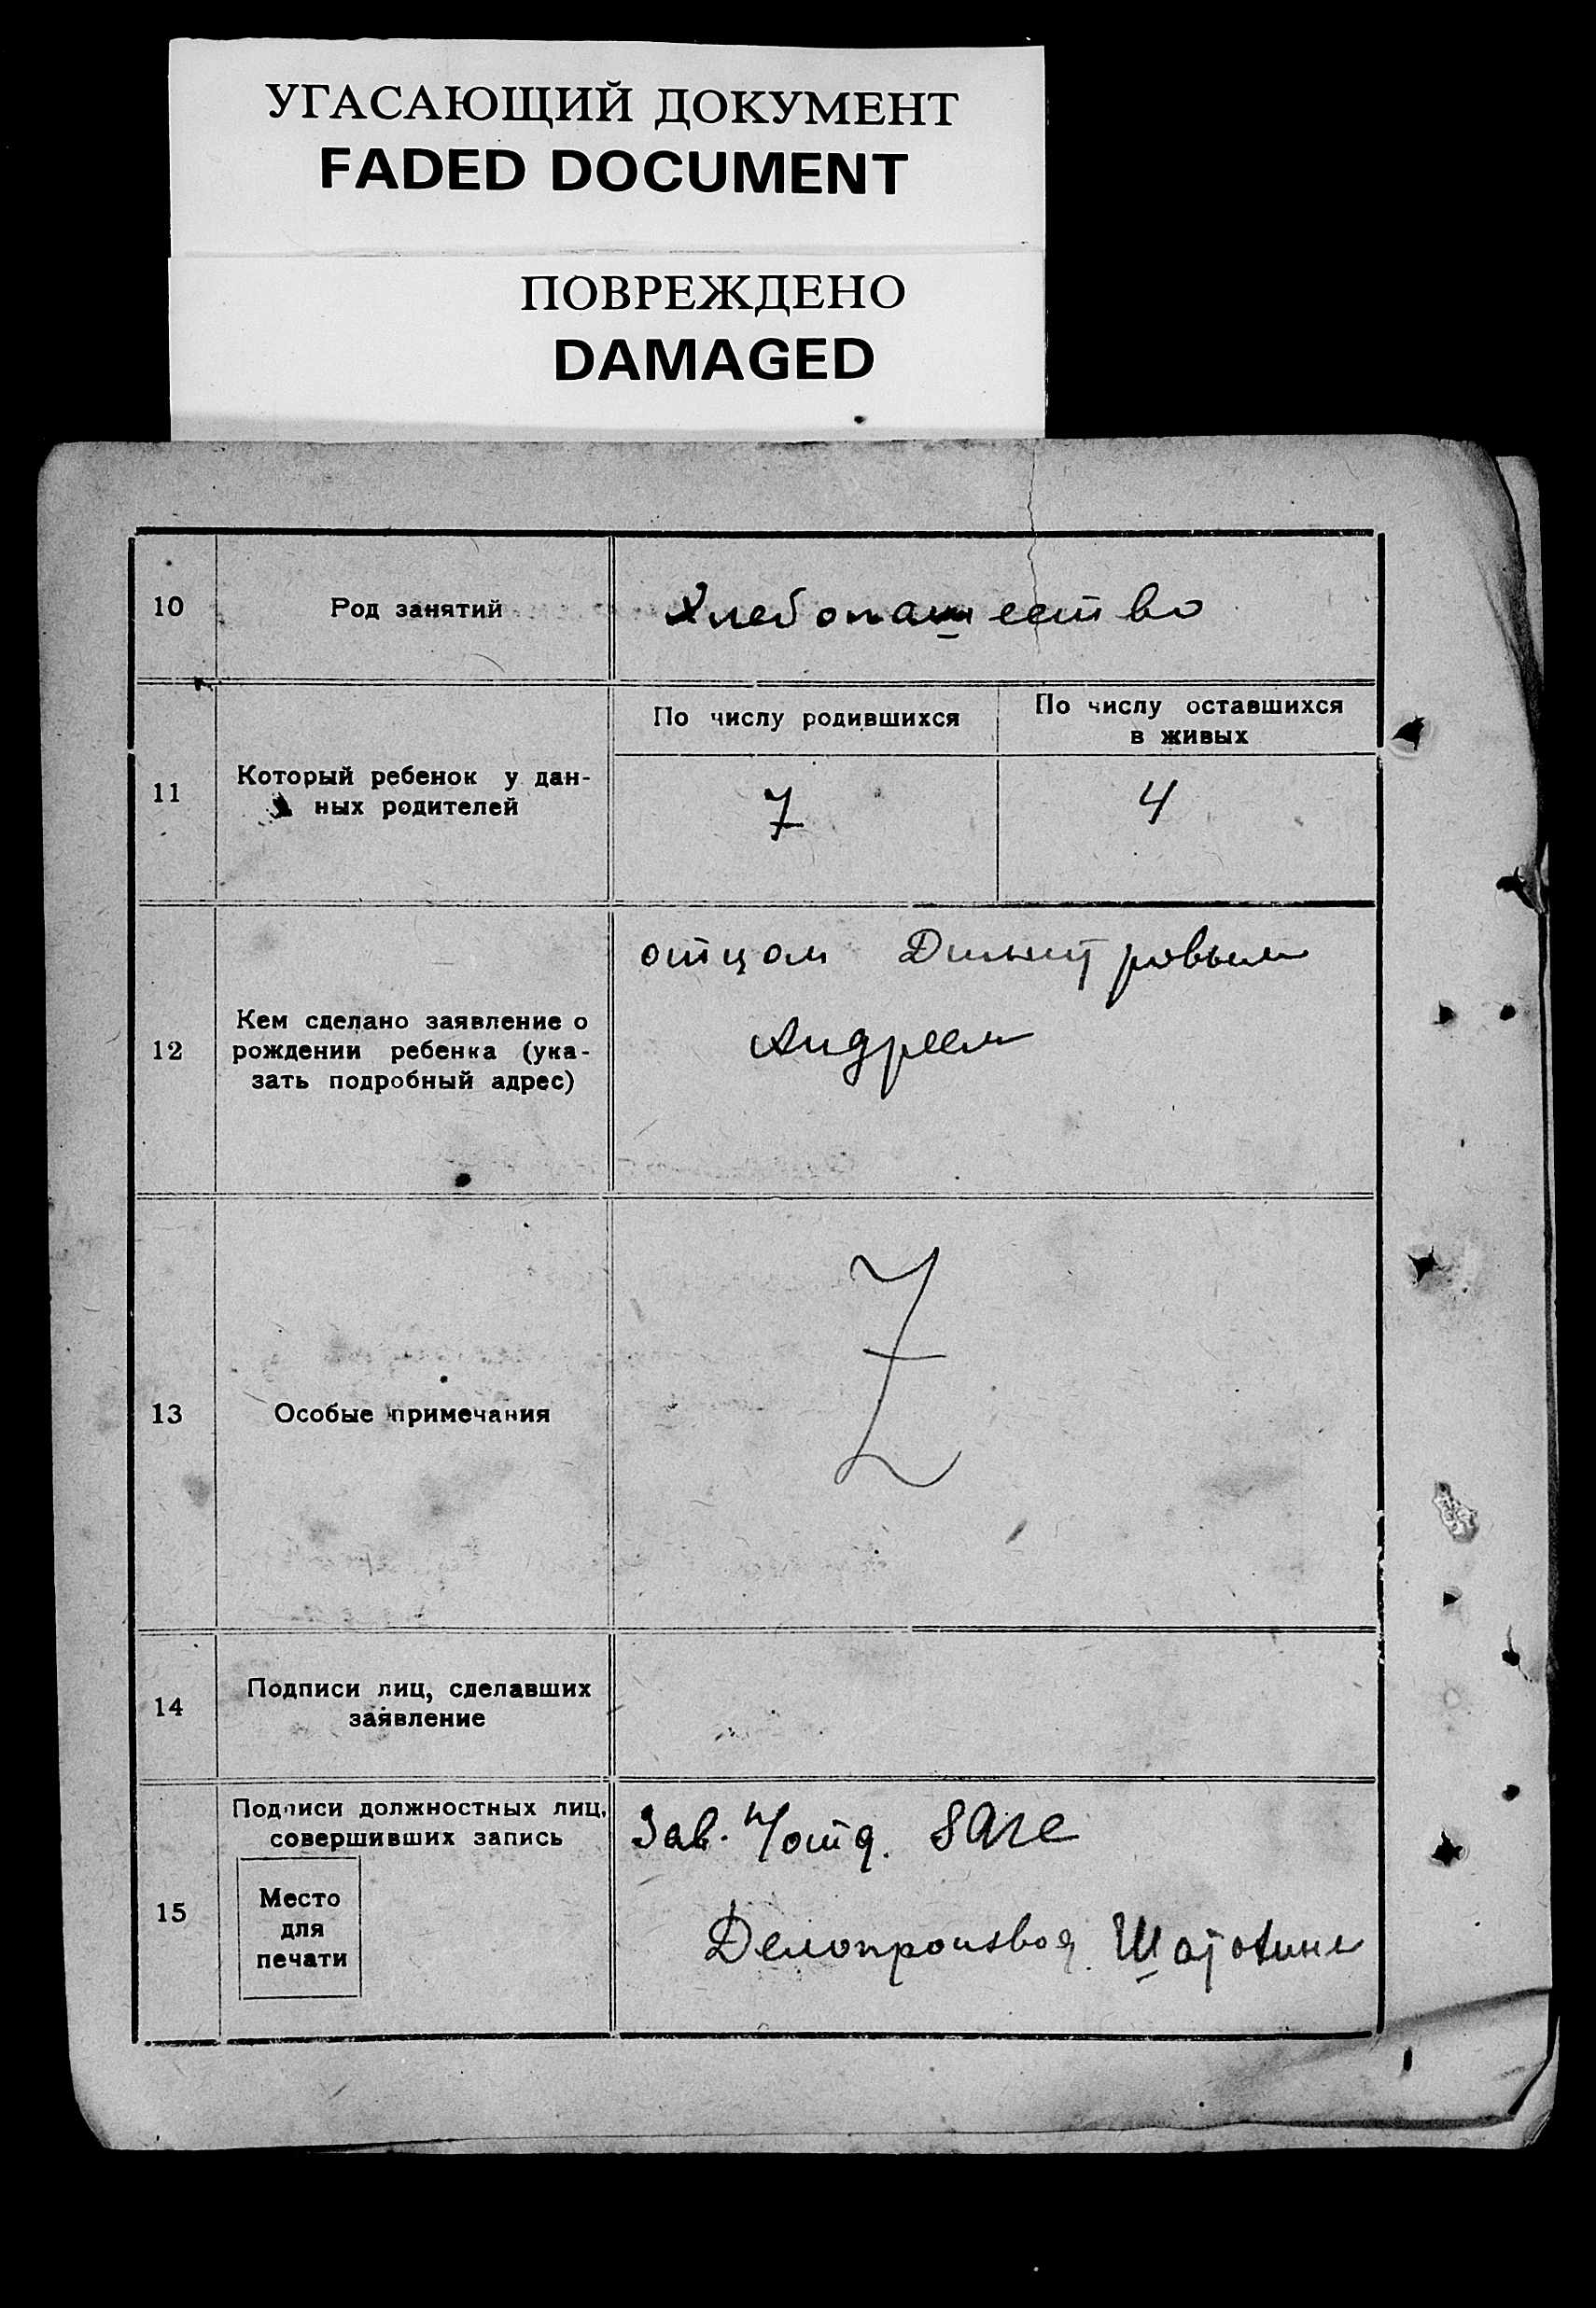 УГАСАЮЩИЙ ДОКУМЕНТ
FADED DOCUMENT
ПОВРЕЖДЕНО
DAMAGED
10
Род занятий
Хлебопашеество
11
Который ребенок у дан-
ных родителей
По числу родившихся
По числу оставшихся
в живых
7
4
12
Кем сделано заявление о
рождении ребенка (ука-
зать подробный адрес)
отцом Димитровым
Андреем
13
Особые примечания
Z
14
Подписи лиц, сделавших
заявление
15
Подписи должностных лиц,
совершивших запись
Место
для
печати
Зав.
Делопроизвод.